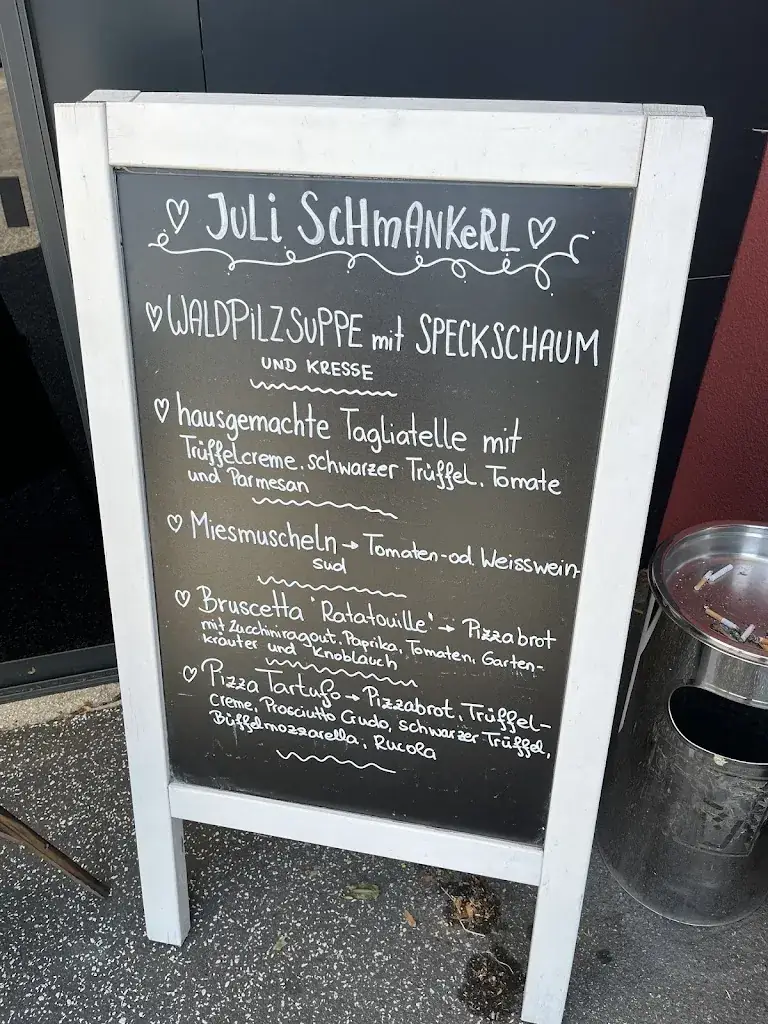 JULI SCHMANKERL
WALDPILZSUPPE mit SPECKSCHAUM
UND KRESSE
hausgemachte Tagliatelle mit
Trüffelcreme, schwarzer Trüffel, Tomate
und Parmesan
Miesmuscheln → Tomaten-od. Weisswein-
sud
Bruscetta 'Ratatouille' → Pizzabrot
mit Zucchiniragout, Paprika, Tomaten, Garten-
kräuter und Knoblauch
Pizza Tartufo → Pizzabrot, Trüffel-
creme, Prosciutto Crudo, schwarzer Trüffel,
Büffelmozzarella, Rucola